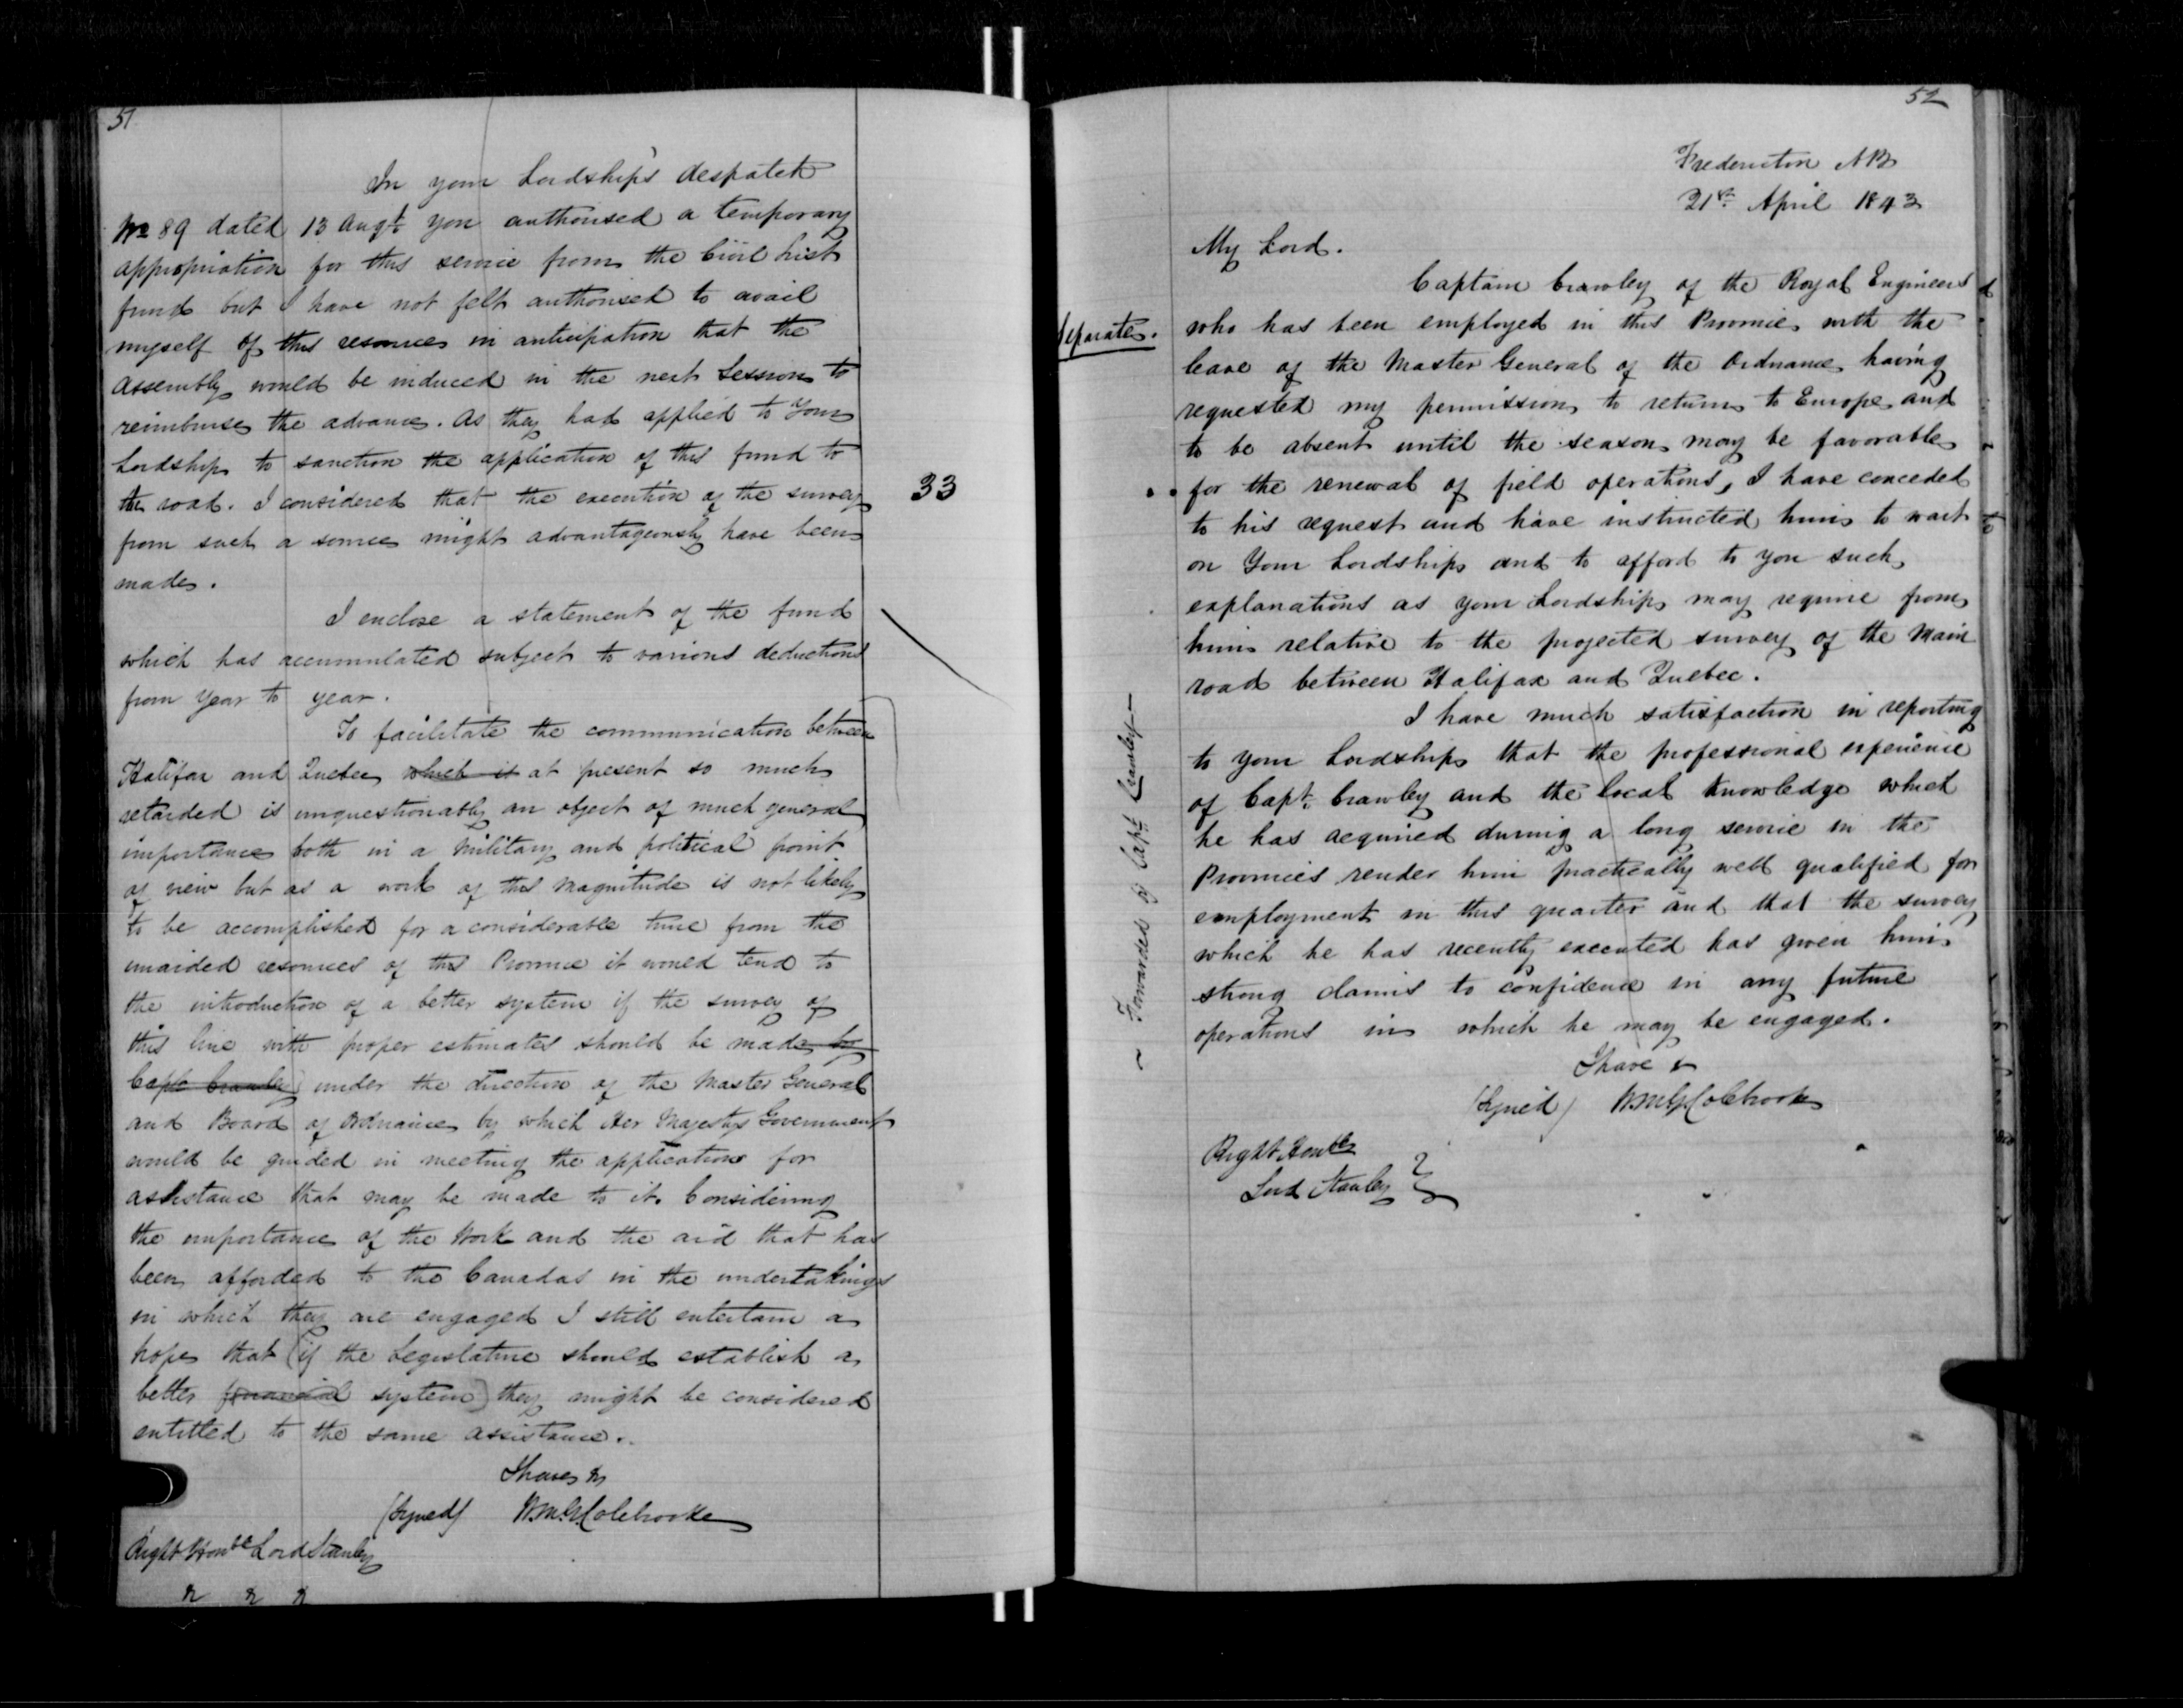 51
In your Lordship's despatch
No 89 dated 13 Augt you authorised a temporary
appropriation for this service from the Civil List
fund but I have not felt authorised to avail
myself of this resource in anticipation that the
Assembly would be induced in the next Session to
reimburse the advance. As they had applied to Your
Lordship to sanction the application of this fund to
the road. I considered that the execution of the survey
from such a source might advantageously have been
made.
33
I enclose a statement of the fund
which has accumulated subject to various deductions
from year to year.
To facilitate the communication between
Halifax and Quebec which is at present so much
retarded is unquestionably an object of much general
importance both in a Military and political point
of view but as a work of this magnitude is not likely
to be accomplished for a considerable time from the
unaided resources of this Province it would tend to
the introduction of a better system if the survey of
this line with proper estimates should be made by
Capt Crawley under the direction of the Master General
and Board of Ordnance by which Her Majestys Government
would be guided in meeting the applications for
assistance that may be made to it. Considering
the importance of the Work and the aid that has
been afforded to the Canadas in the undertakings
in which they are engaged I still entertain a
hope that (if the Legislature should establish a
better financial system) they might be considered
entitled to the same assistance.
I have &
(Signed) W.M.G. Colebrooke
Right Honble Lord Stanley
& & &
52
Fredericton NB
21st April 1843
My Lord.
Separate.
Captain Crawley of the Royal Engineers
who has been employed in this Province with the
leave of the Master General of the Ordnance having
requested my permission to return to Europe and
to be absent until the season may be favorable
for the renewal of field operations, I have conceded
to his request and have instructed him to wait
on Your Lordship and to afford to you such
explanations as your Lordship may require from
him relative to the projected survey of the Main
road between Halifax and Quebec.
I have much satisfaction in reporting
to your Lordship that the professional experience
of Capt. Crawley and the local knowledge which
he has acquired during a long service in the
Provinces render him practically well qualified for
employment in this quarter and that the survey
which he has recently executed has given him
strong claims to confidence in any future
operations in which he may be engaged.
~ Forwarded by Capt Crawley —
I have &
(Signed) W.M.G. Colebrooke
Right Honble
Lord Stanley